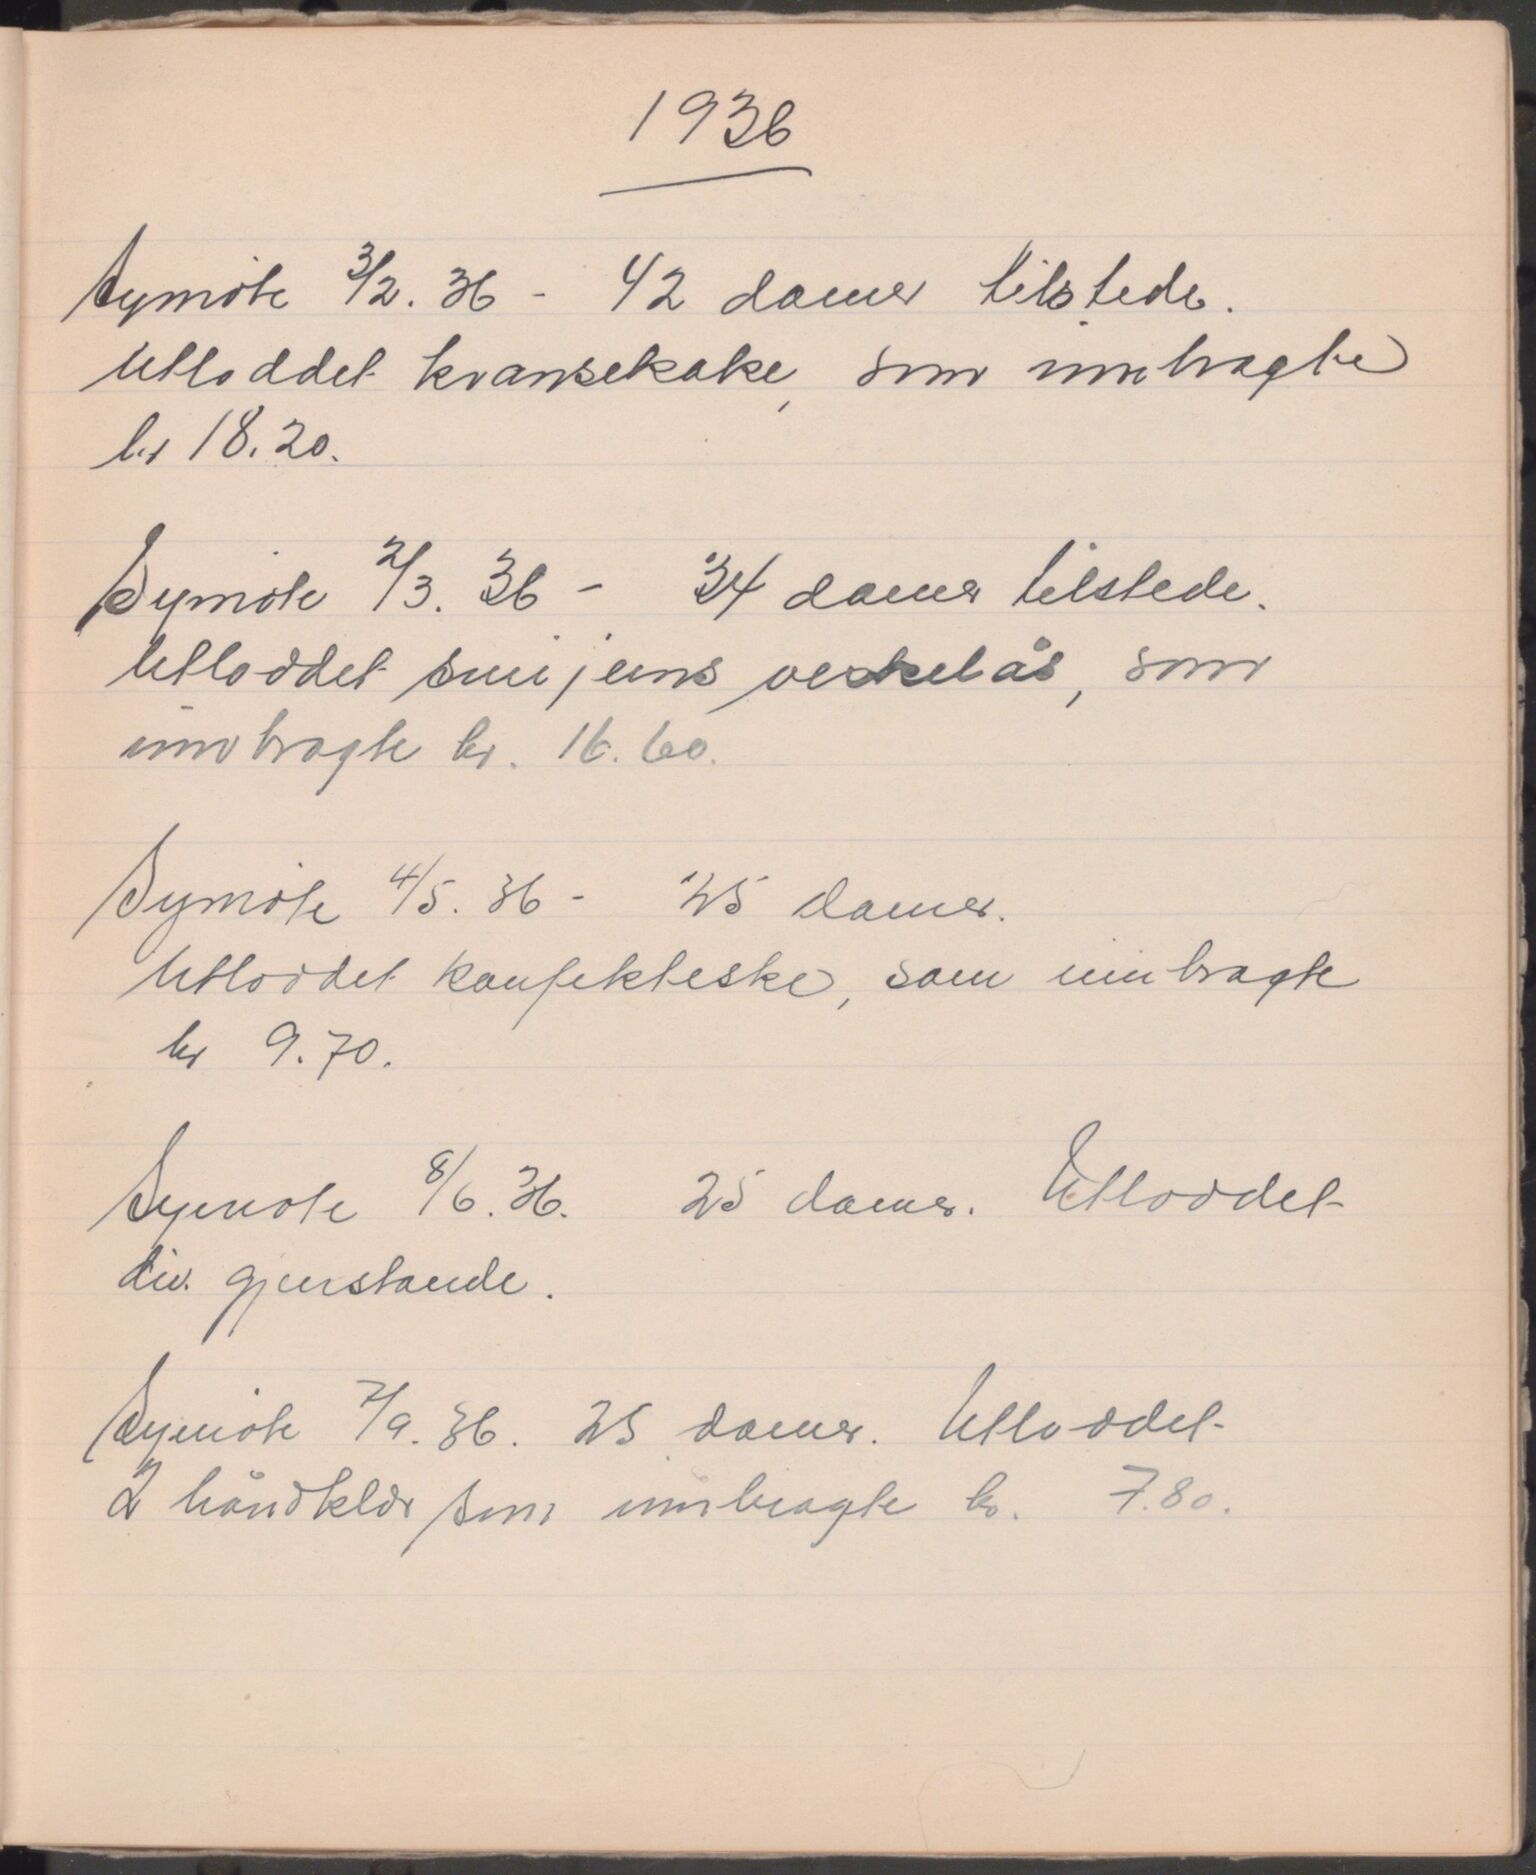 1936
Symöte 3/2. 36 - 42 damer tilstede.
Utloddet kransekake, som innbragte
kr 18.20.
Symöte 2/3. 36 - 34 damer tilstede.
Utloddet smijerns veskelås, som
innbragte kr. 16.60.
Symöte 4/5. 36 - 25 damer.
Utloddet konfekteske, som innbragte
kr 9.70.
Symöte 8/6. 36. 25 damer. Utloddet
div. gjenstande.
Symöte 7/9. 36. 25 damer. Utloddet
2 håndklær som innbragte kr. 7.80.